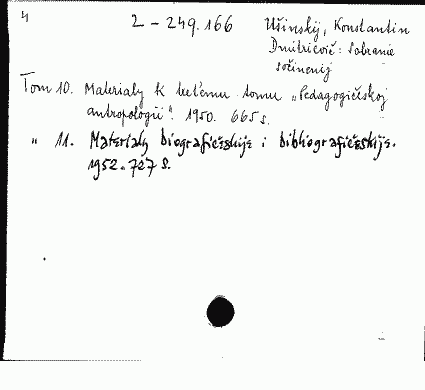 4
2 - 249.166 Ušinskij, Konstantin
Dmitrievič: Sobranie
sočinenij
Tom 10. Materialy k tret'emu tomu „Pedagogičeskoj
antropologii". 1950. 665 s.
„ 11. Materialy biografičeskije i bibliografičeskije.
1952. 727 S.